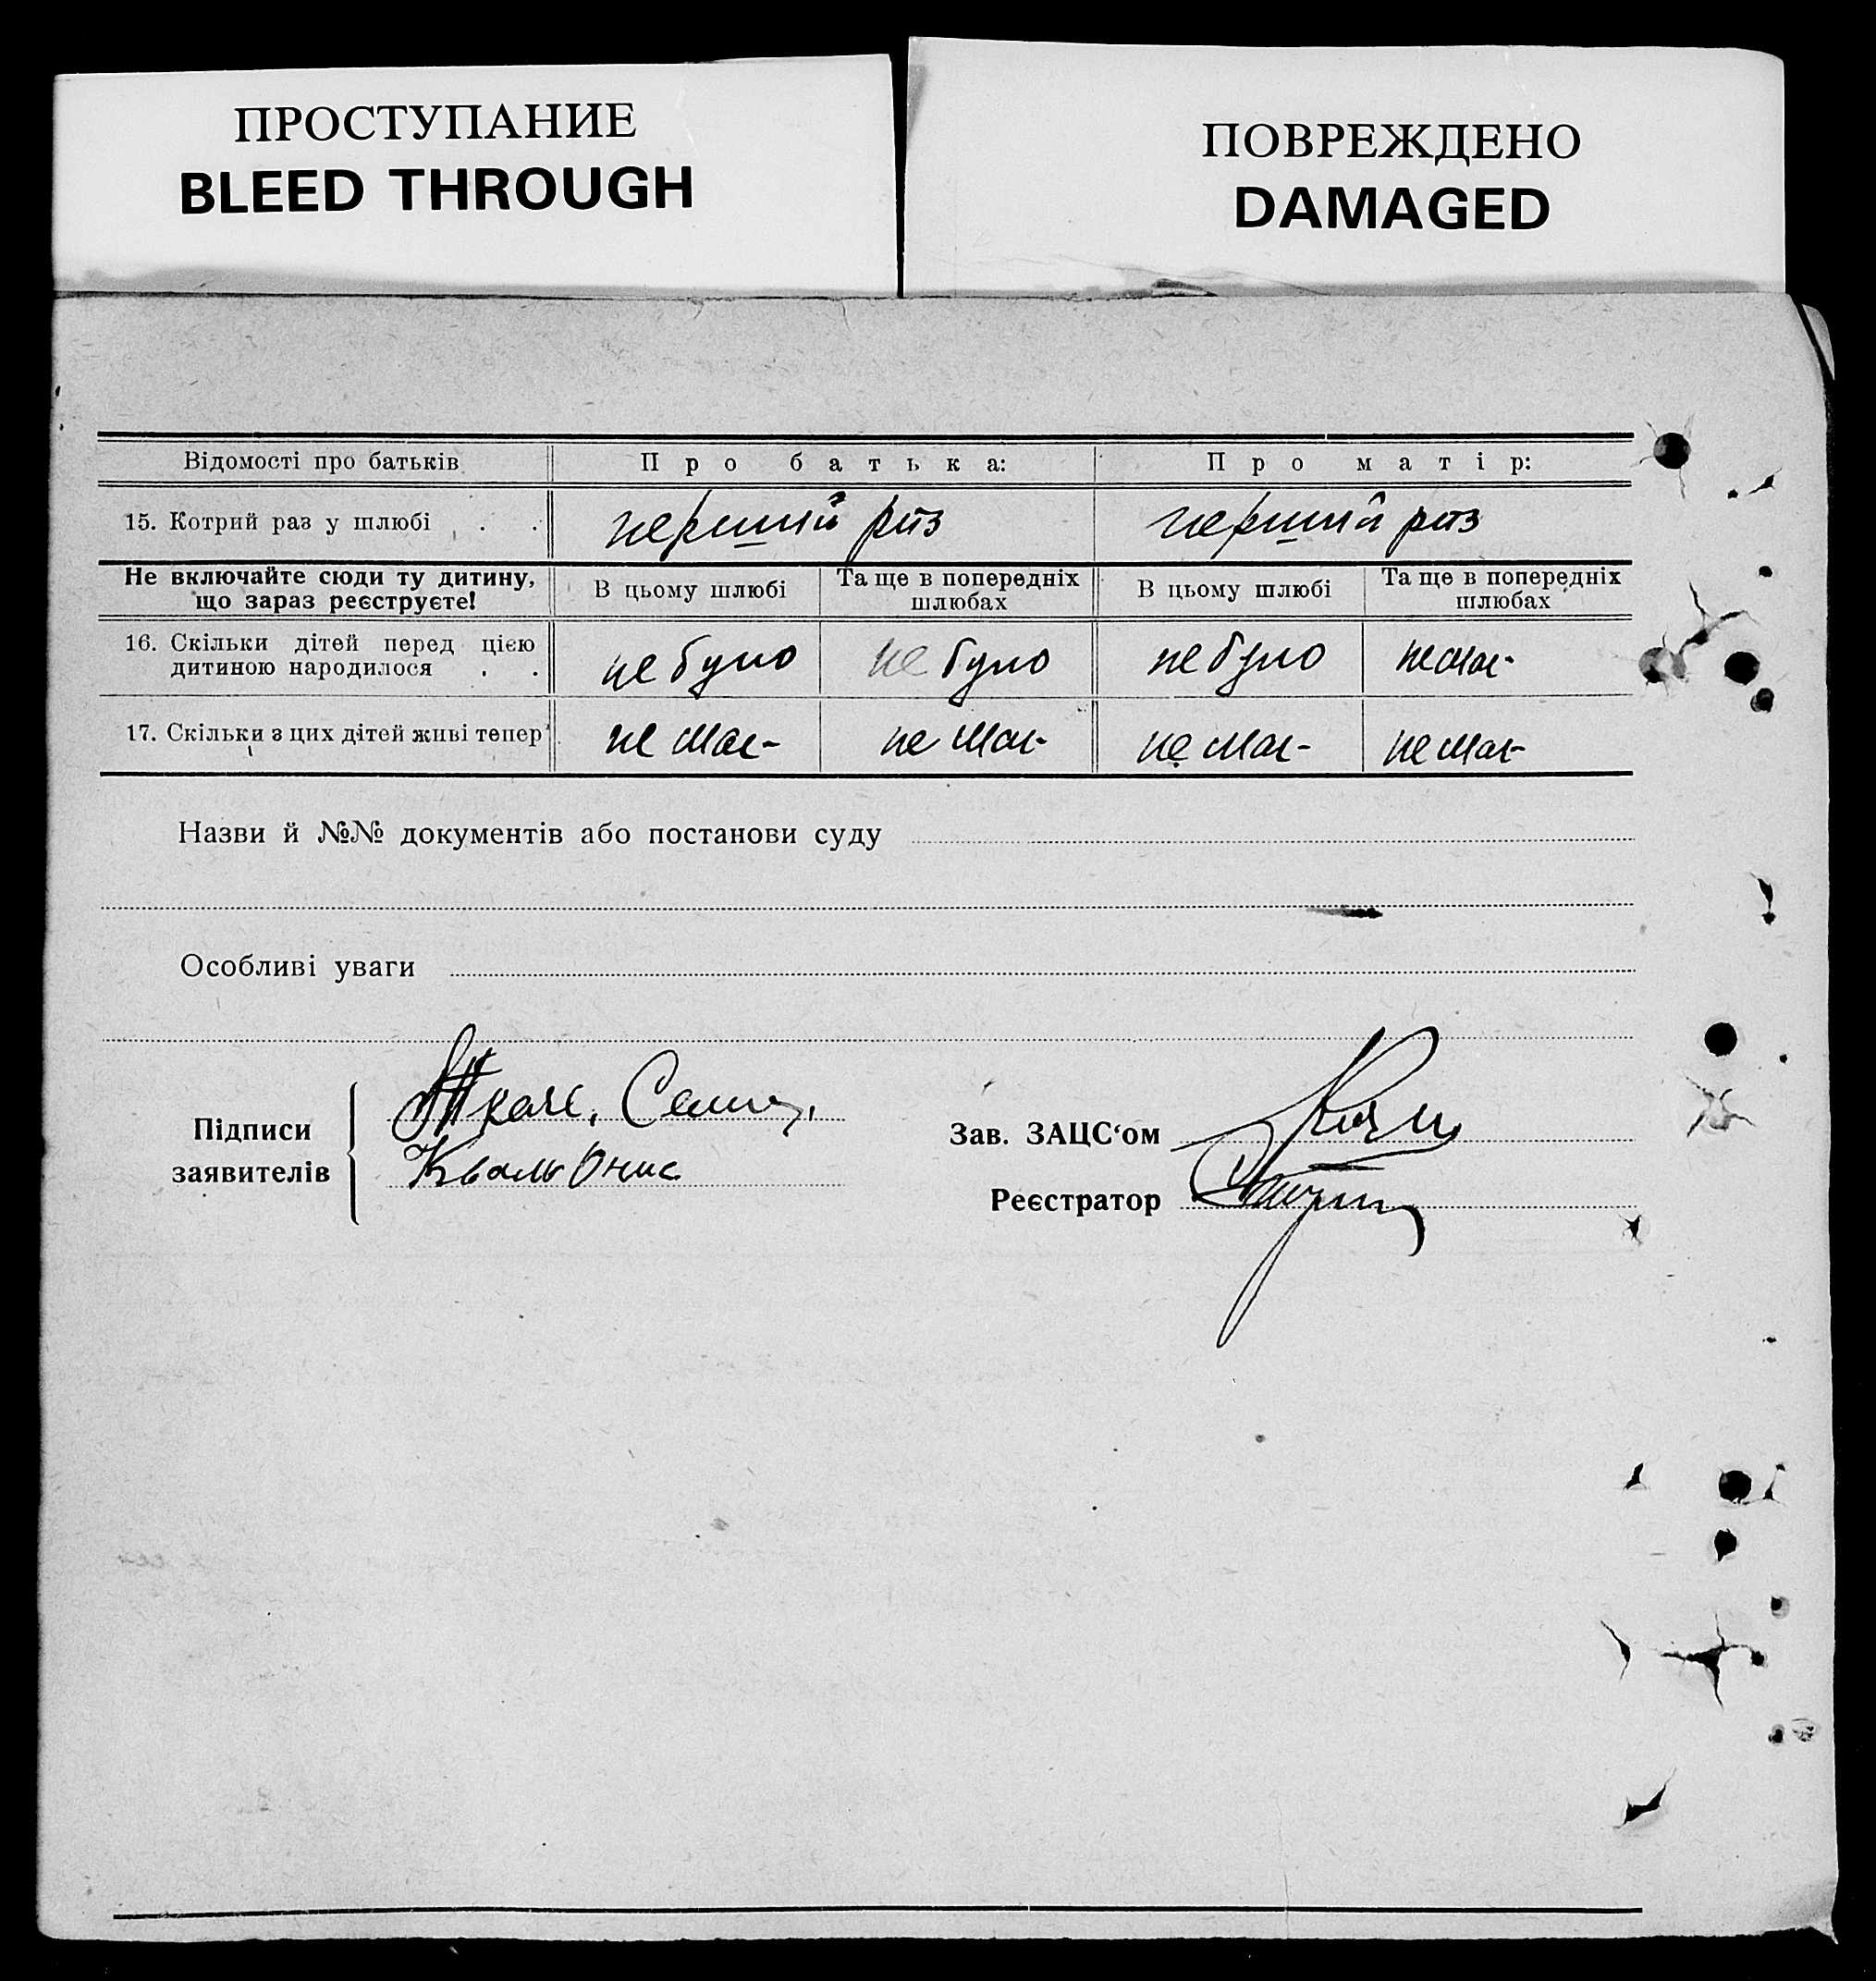 ПРОСТУПАНИЕ
BLEED THROUGH
ПОВРЕЖДЕНО
DAMAGED
Відомості про батьків Про батька: Про матір:
15. Котрий раз у шлюбі . . перший раз перший раз
Не включайте сюди ту дитину, що зараз реєструєте! В цьому шлюбі Та ще в попередніх шлюбах В цьому шлюбі Та ще в попередніх шлюбах
16. Скільки дітей перед цією
дитиною народилося . . не було не було не було немає
17. Скільки з цих дітей живі тепер не має не має не має не має
Назви й №№ документів або постанови суду
Особливі уваги
Підписи
заявителів
Зав. ЗАЦС‘ом
Реєстратор